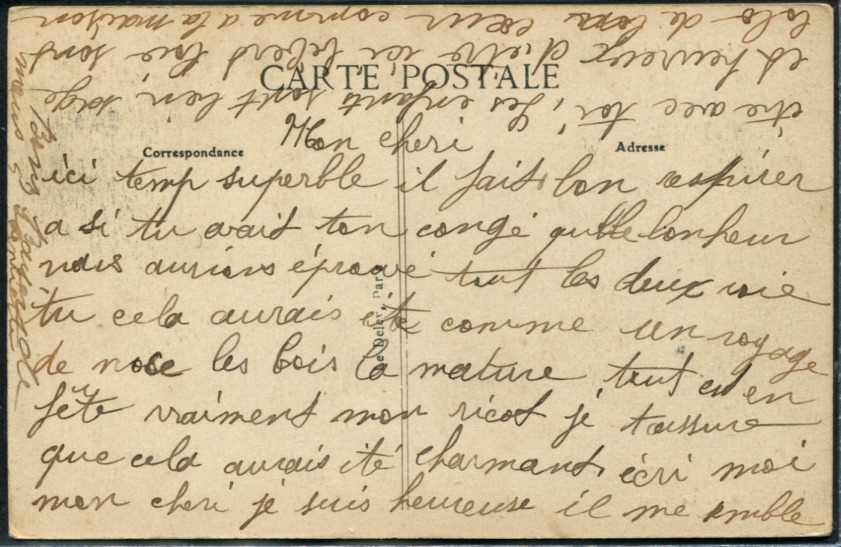 CARTE POSTALE
Correspondance
Adresse
Mon cheri
ici temp superble il fait bon respirer
a si tu avait ton congé quelle bonheur
nous aurions éprouvé tout les deux voie
tu cela aurais été comme un voyage
de noce les bois la nature tout est en
fête vraiment mon ricot je tassure
que cela aurais été charmant, écri moi
mon cheri je suis heureuse il me semble
être avec toi, les enfants sont bien sage
et heureux d'etre ici bebert
lolo de bon cœur comme a la maison